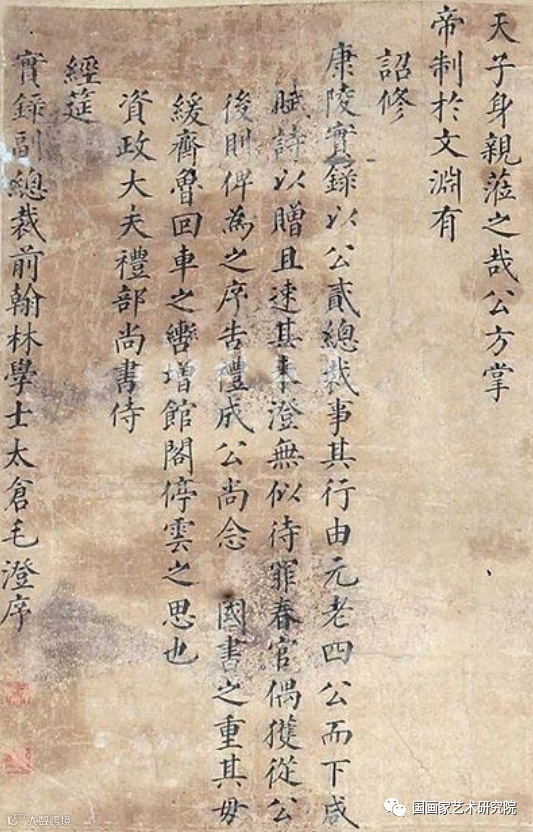 天子身親蒞之哉公方掌
帝制於文淵有
詔修
康陵實錄以公貳總裁事其行由元老四公而下咸
賦詩以贈且速其來澄無似待罪春官偶獲從公
後則俾為之序告禮成公尚念 國書之重其毋
緩齊魯回車之轡增館閣停雲之思也
資政大夫禮部尚書侍
經筵
實錄副總裁前翰林學士太倉毛澄序
国画家艺术研究院